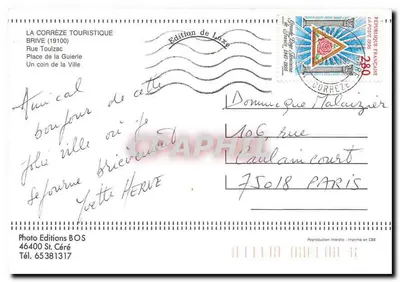 LA CORRÈZE TOURISTIQUE
BRIVE (19100)
Rue Toulzac
Place de la Guierle
Un coin de la Ville
Edition de Luxe
REPUBLIQUE FRANÇAISE
LA POSTE 1995
2,80
CORREZE
Amical
bonjour de cette
jolie ville où je
séjourne brièvement
Yvette HERVE
Dominique
106, rue
Caulaincourt
75018 PARIS
Photo Editions BOS
46400 St. Céré
Tél. 65381317
Reproduction interdite - Imprimé en CEE